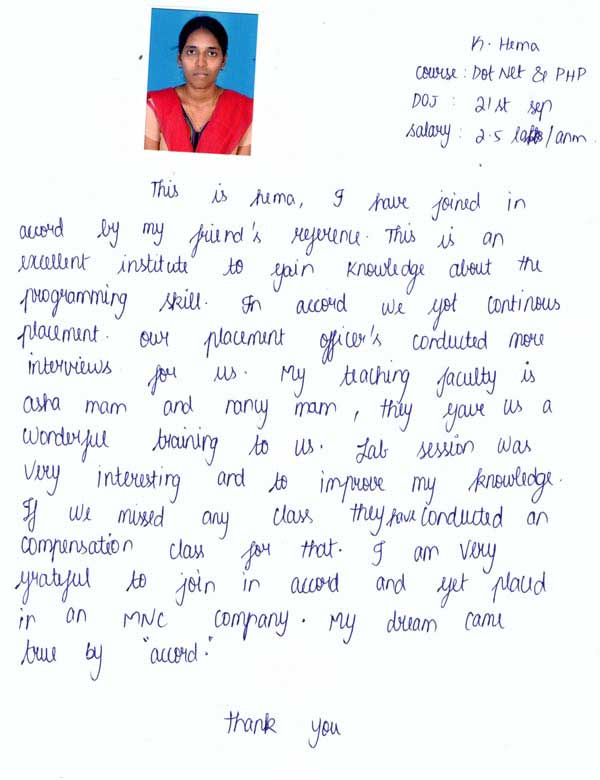 K. Hema
Course : Dot Net & PHP
DOJ : 21st sep
Salary : 2.5 /anm.
This is hema, I have joined in
accord by my friend's reference. This is an
excellent institute to gain knowledge about the
programming skill. In accord we got continous
placement. our placement officer's conducted more
interviews for us. My teaching faculty is
asha mam and nancy mam, they gave us a
wonderful training to us. Lab session was
very interesting and to improve my knowledge.
If we missed any class they have conducted an
compensation class for that. I am very
grateful to join in accord and get placed
in an MNC company. My dream came
true by "accord."
thank you